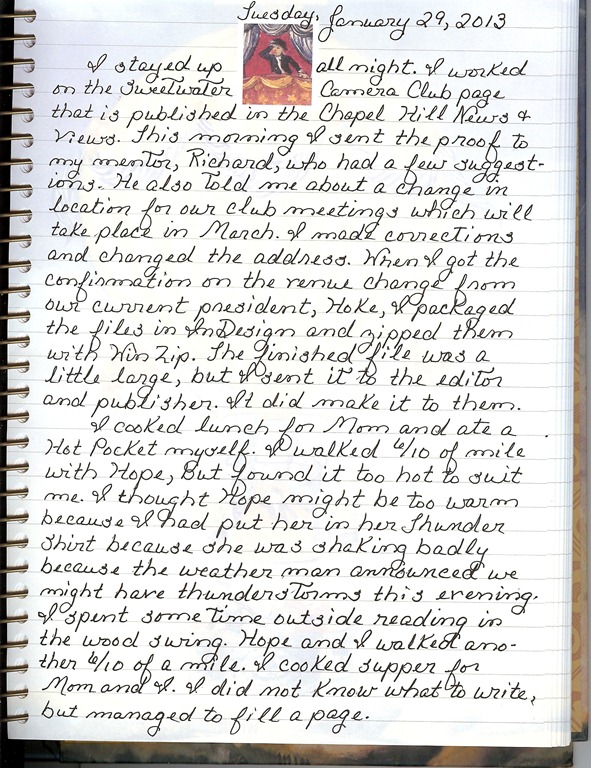 Tuesday, January 29, 2013
I stayed up all night. I worked
on the SweetWater Camera Club page
that is published in the Chapel Hill News &
Views. This morning I sent the proof to
my mentor, Richard, who had a few suggest-
ions. He also told me about a change in
location for our club meetings which will
take place in March. I made corrections
and changed the address. When I got the
confirmation on the venue change from
our current president, Hoke, I packaged
the files in InDesign and zipped them
with WinZip. The finished file was a
little large, but I sent it to the editor
and publisher. It did make it to them.
I cooked lunch for Mom and ate a
Hot Pocket myself. I walked 6/10 of mile
with Hope, but found it too hot to suit
me. I thought Hope might be too warm
because I had put her in her Thunder
Shirt because she was shaking badly
because the weather man announced we
might have thunderstorms this evening.
I spent some time outside reading in
the wood swing. Hope and I walked ano-
ther 6/10 of a mile. I cooked supper for
Mom and I. I did not know what to write,
but managed to fill a page.